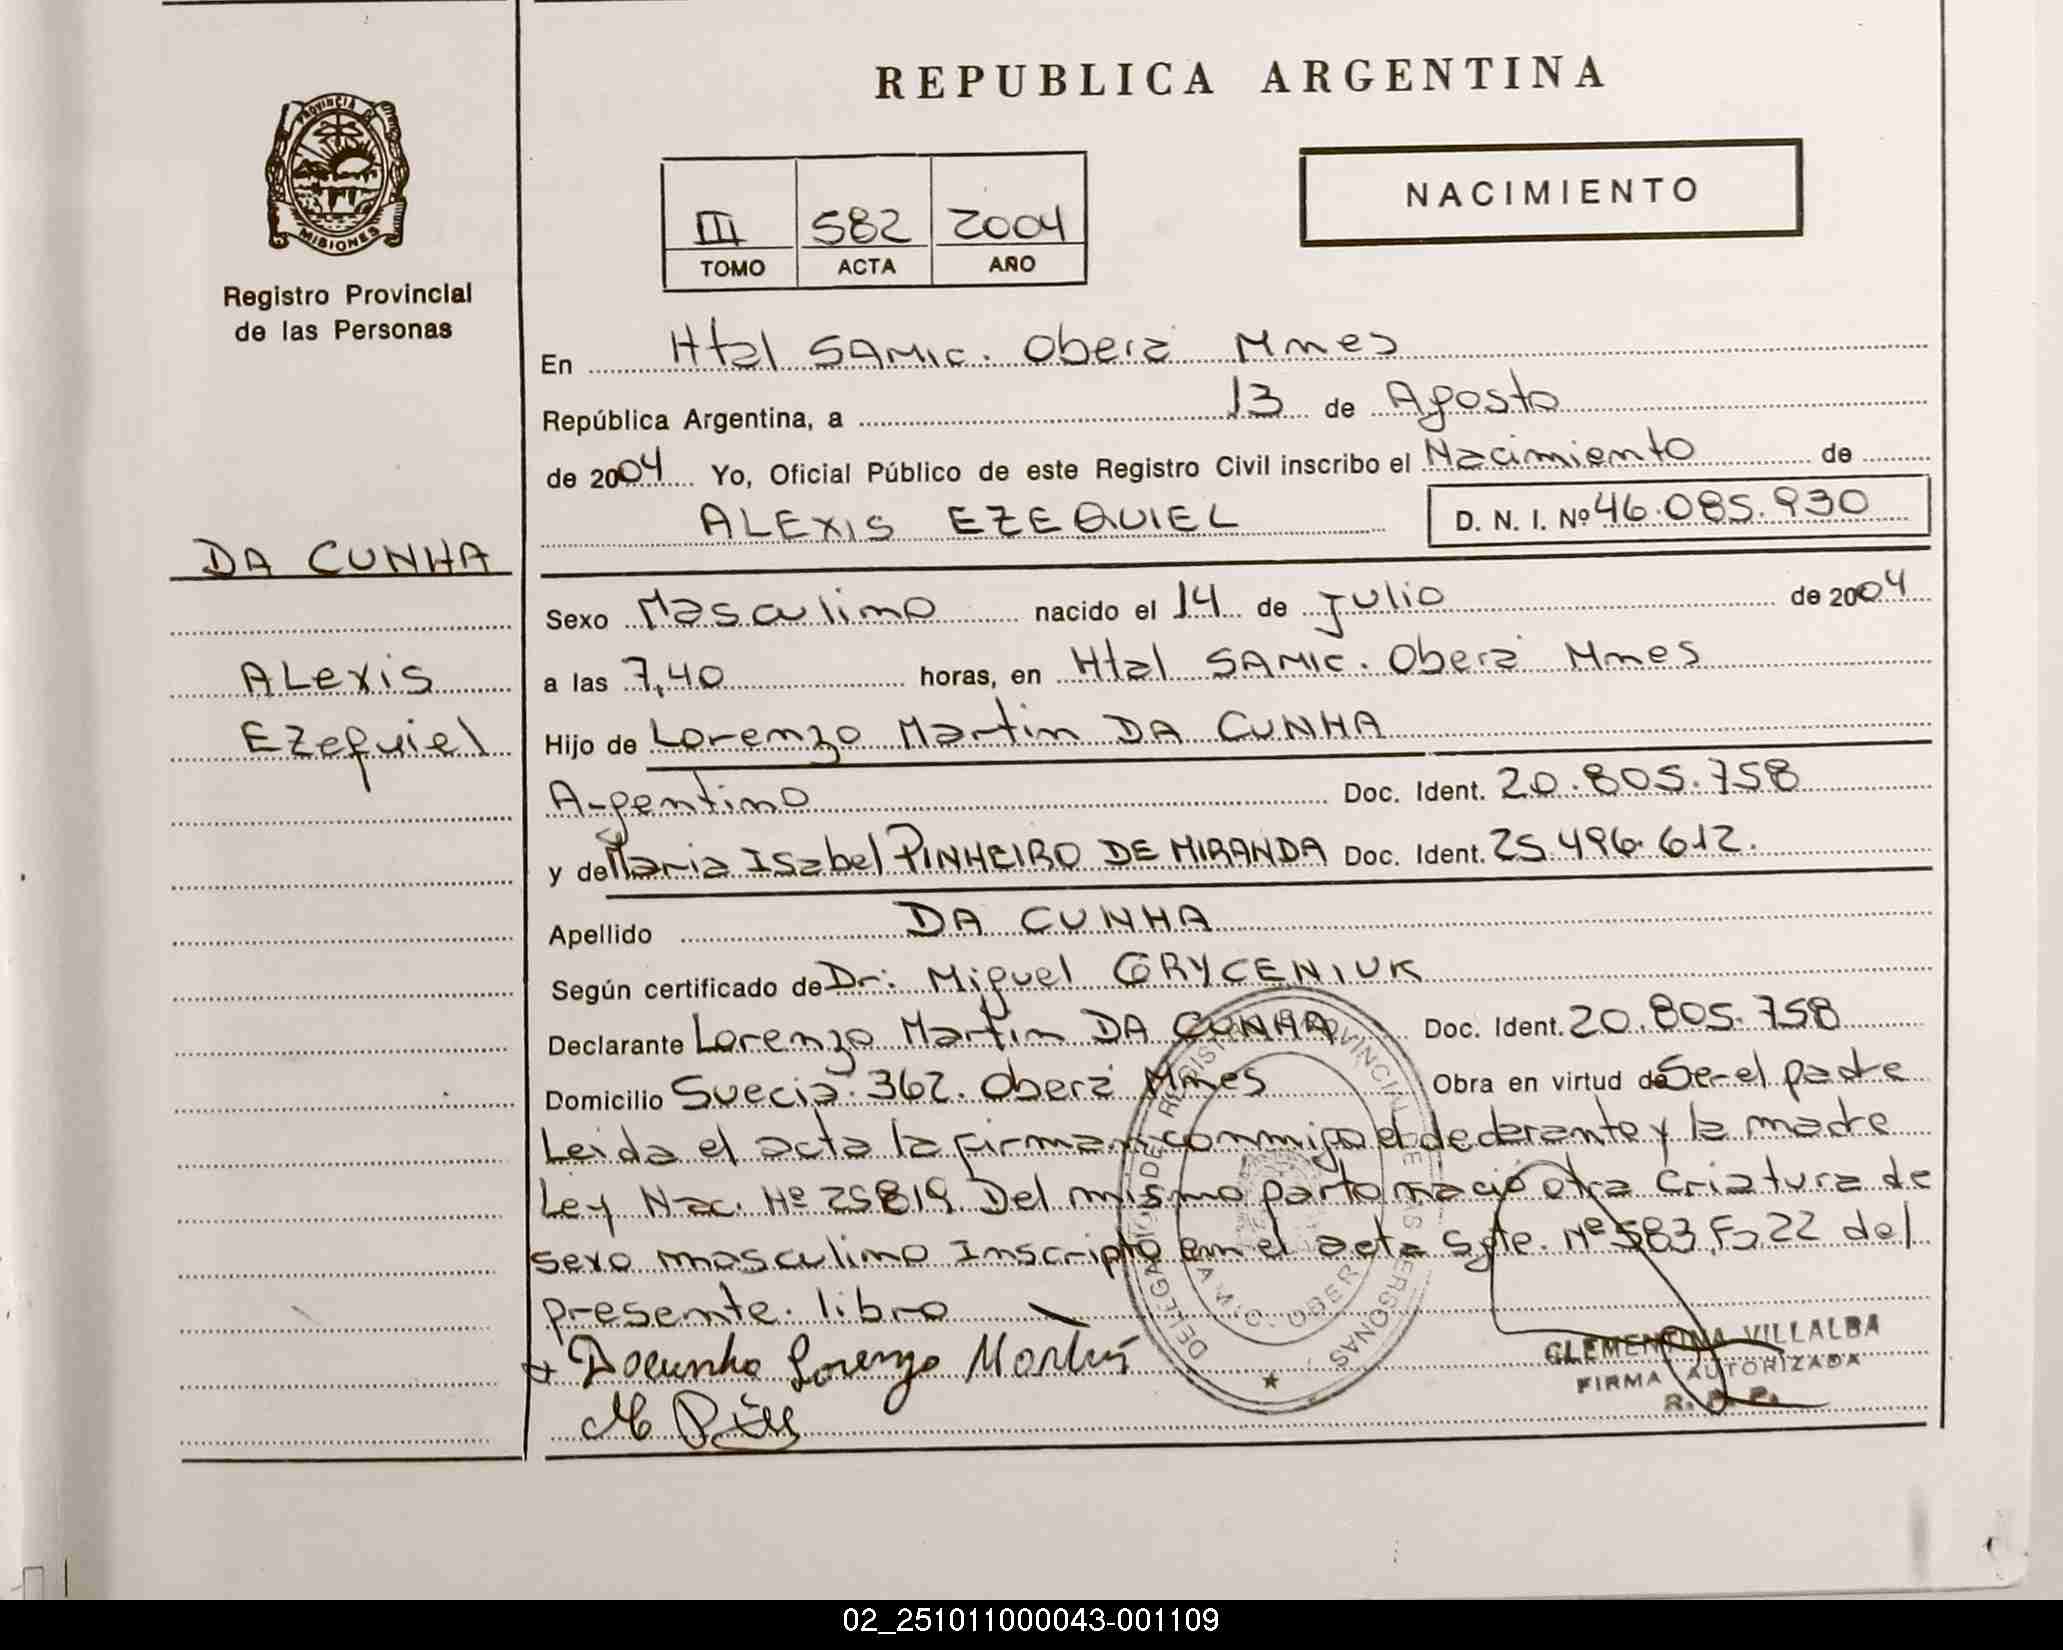 REPUBLICA ARGENTINA
PROVINCIA DE MISIONES
Registro Provincial
de las Personas
NACIMIENTO
III 582 2004
TOMO ACTA AÑO
En Htal SAMIC. Oberá Mnes
República Argentina, a 13 de Agosto
de 2004 Yo, Oficial Público de este Registro Civil inscribo el Nacimiento de
ALEXIS EZEQUIEL D. N. I. Nº 46.085.930
DA CUNHA
Alexis
Ezequiel
Sexo Masculino nacido el 14 de Julio de 2004
a las 7,40 horas, en Htal SAMIC. Oberá Mnes
Hijo de Lorenzo Martin DA CUNHA
Argentino Doc. Ident. 20.805.758
y de Maria Isabel PINHEIRO DE MIRANDA Doc. Ident. 25.496.612.
Apellido DA CUNHA
Según certificado de Dr: Miguel GRYCENIUK
Declarante Lorenzo Martin DA CUNHA Doc. Ident. 20.805.758
Domicilio Suecia 362. Oberá Mnes Obra en virtud de Ser el padre
Leida el acta la firman conmigo el declarante y la madre
Ley Nac. Nº 25819 Del mismo parto nació otra criatura de
sexo masculino Inscripto en el acta Sgte. Nº 583, Fº 22 del
presente libro
Dacunha Lorenzo Martin
DELEGACION DE REGISTRO PROVINCIAL DE LAS PERSONAS
CLEMENTINA VILLALBA
FIRMA AUTORIZADA
R. P. P.
02_251011000043-001109